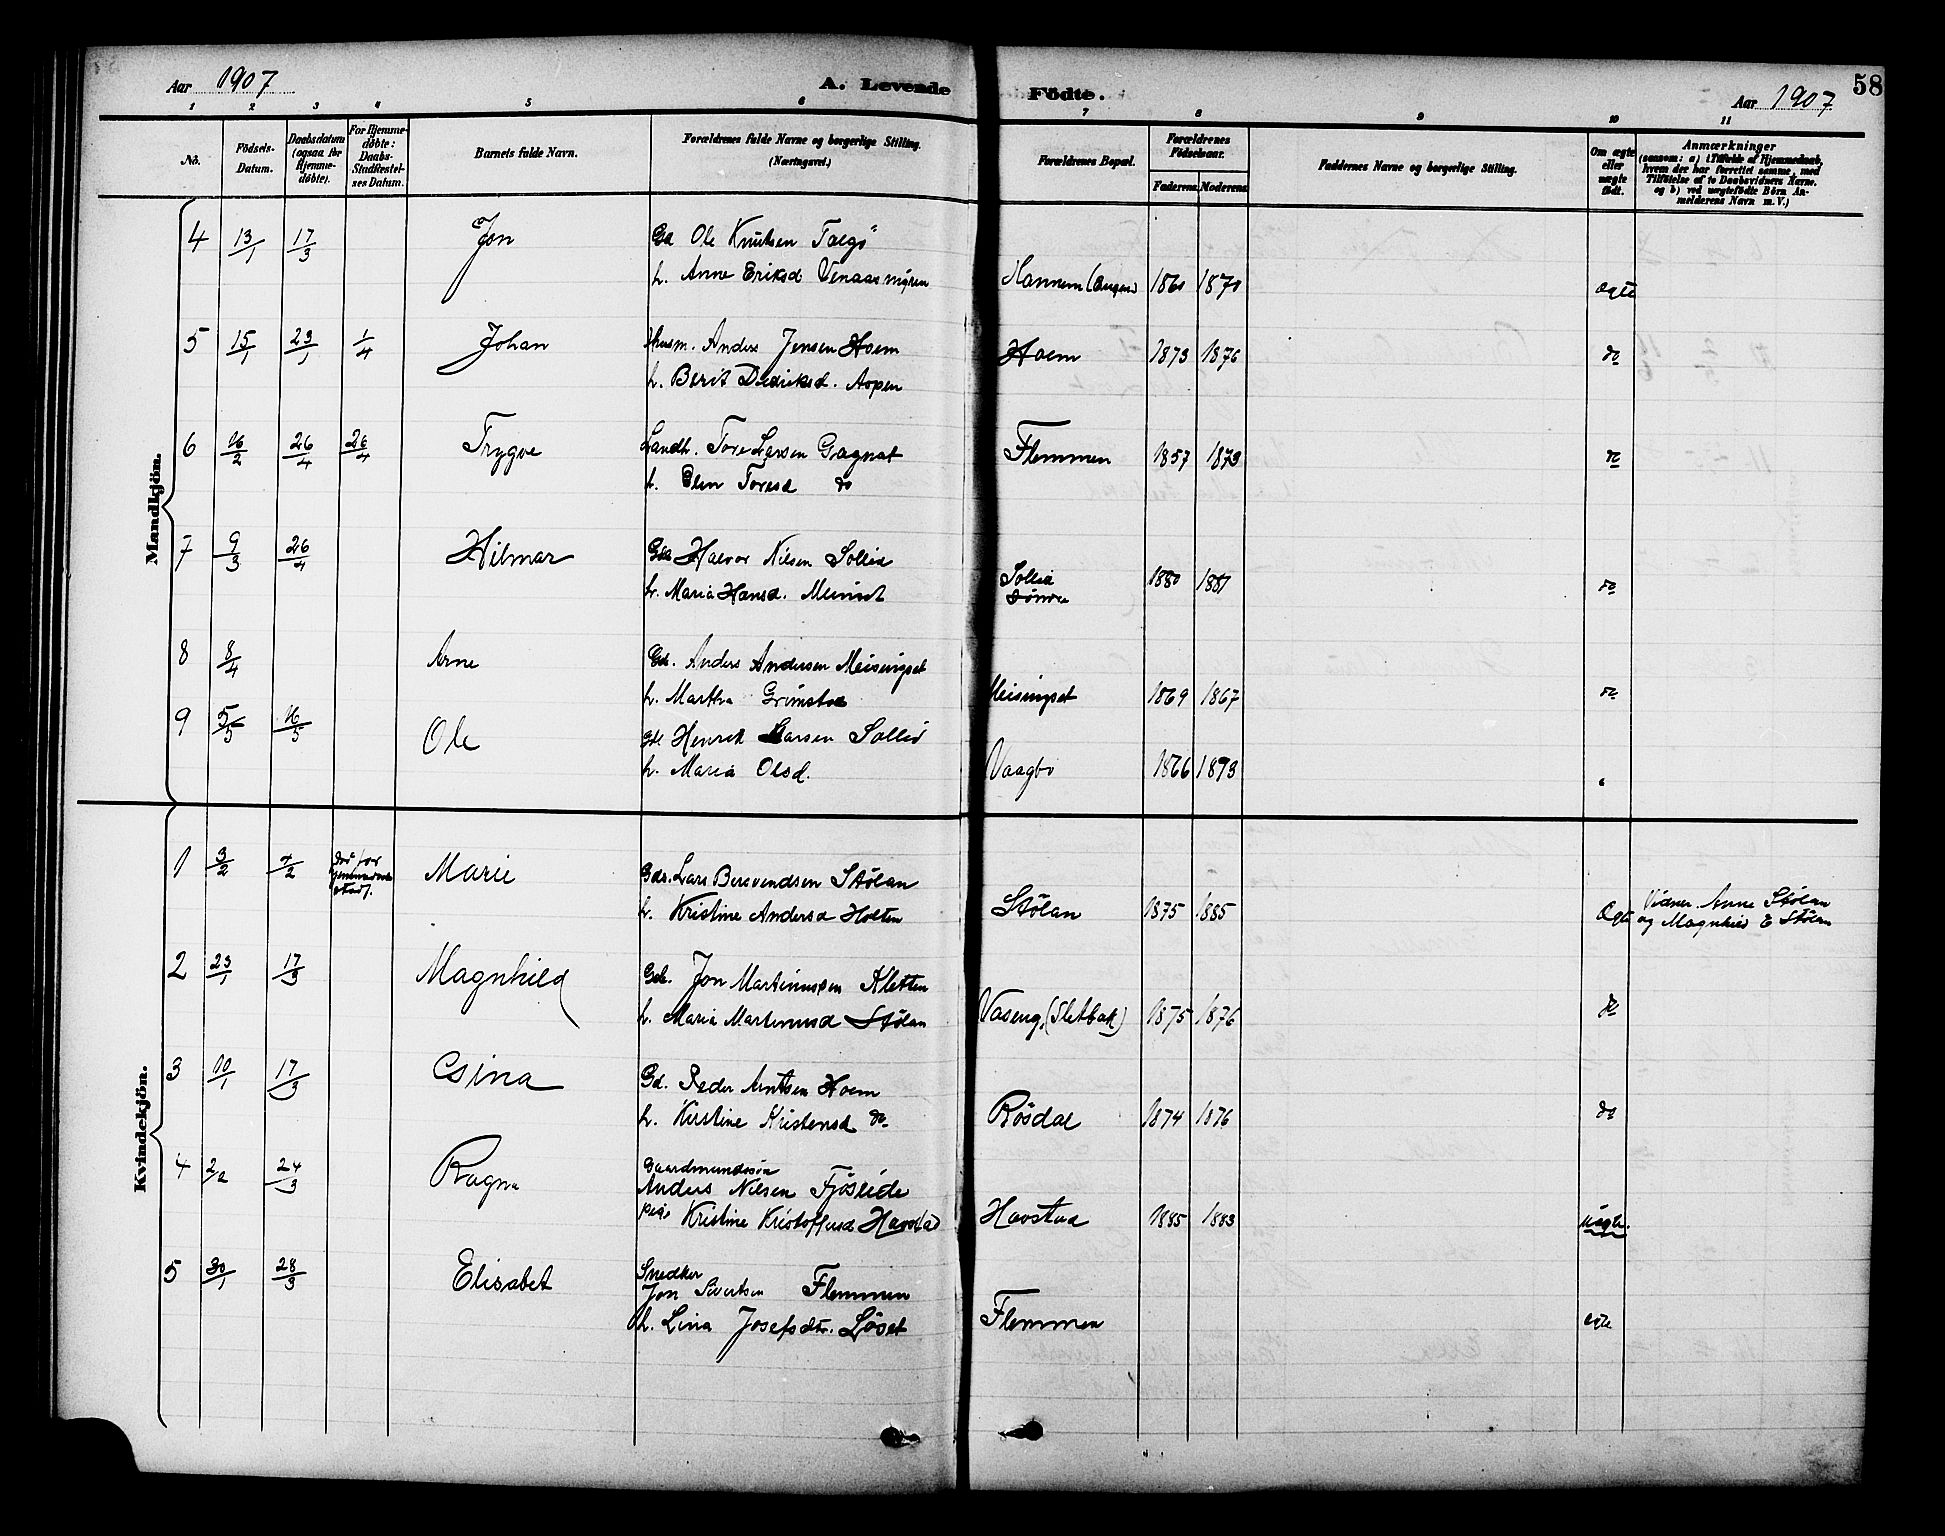 58
Aar 1907
A. Levende Födte.
Aar 1907
1 2 3 4 5 6 7 8 9 10 11
No.
Födsels-Datum.
Daabsdatum (ogsaa for Hjemme-döbte).
For Hjemme-döbte: Daabs-Stadfæstel-ses Datum.
Barnets fulde Navn.
Forældrenes fulde Navne og borgerlige Stilling. (Næringsvei.)
Forældrenes Bopæl.
Forældrenes Födselsaar.
Faderens. Moderens.
Faddernes Navne og borgerlige Stilling.
Om ægte eller uægte födt.
Anmærkninger
(saasom: a) i Tilfælde af Hjemmedaab, hvem der har forrettet samme, med Tilföielse af to Daabsvidners Navne, og b) ved uægtefödte Börn An-melderens Navn m. V.)
Mandkjön.
4 13/1 17/3 Jon Gd Ole Knutsen Talgö
h. Anne Eriksd Venaasmyren Hannem 1860 1870 ægte
5 15/1 23/1 1/4 Johan Husm. Anders Jensen Hoem
h. Berit Didriksd. Aspen Hoem 1873 1876 do
6 16/2 26/4 26/4 Trygve Landh. Tore Larsen Gagnat
h. Elen Toresd do Flemmen 1857 1873 do
7 9/3 26/4 Hilmar Gdr Halvor Nilsen Sollid
h. Maria Hansd. Sollid 1880 1881 do
8 8/4 Arne Gdr. Anders Andersen Meisingset
h. Martha Grimstad Meisingset 1869 1867 do
9 5/5 16/5 Ole Gdr Henrik Larsen Sollid
h. Maria Olsd. Vaagbö 1866 1873 "
Kvindekjön.
1 3/2 4/2 död för Marie Gdr. Lars Bersvendsen Stölan
h. Kristine Andersd Holten Stölan 1875 1885 Ægte Vidner. Anne Stölan
og Magnhild E Stölan
2 23/1 17/3 Magnhild Gdr. Jon Martinussen Kletten
h. Maria Martinusd Stölan Vaseng, (Sletbak) 1875 1876 do
3 10/1 17/3 Esina Gd. Peder Arntsen Hoem
h. Kirstine Kristensd do Rösdal 1874 1876 do
4 2/2 24/3 Ragna Gaardmandssön
Anders Nilsen Fjöseide
pige Kristine Kristoffersd Havstad Havstad 1885 1883 uægte.
5 30/1 28/3 Elisabet Snedker
Jon Sivertsen Flemmen
h. Lina Josefsdtr. Löset Flemmen egte